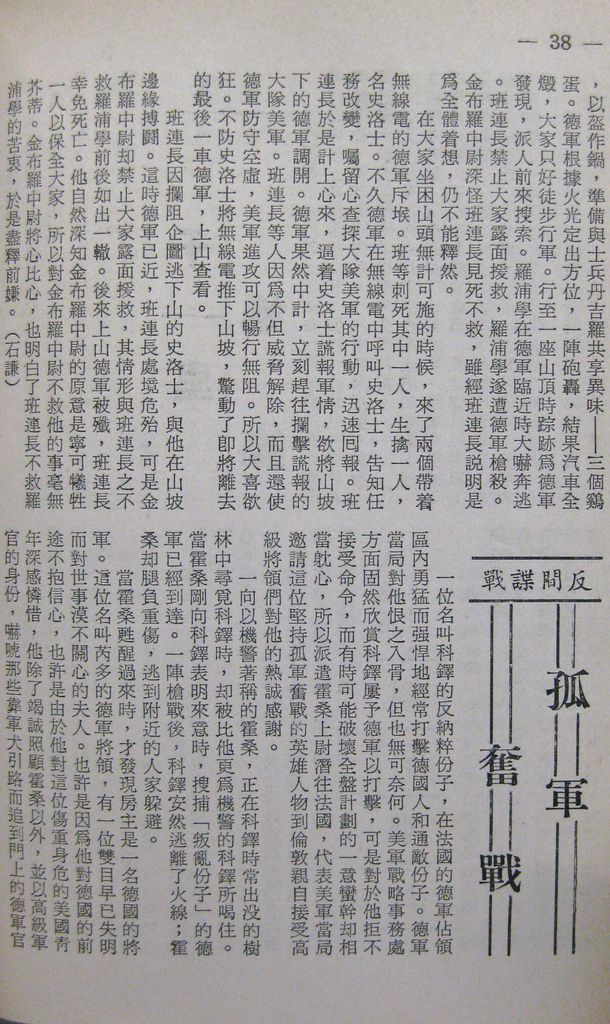 — 38 —
，以盔作鍋，準備與士兵丹吉羅共享異味——三個鷄
蛋。德軍根據火光定出方位，一陣砲轟，結果汽車全
燬，大家只好徒步行軍。行至一座山頂時踪跡爲德軍
發現，派人前來搜索。羅浦學在德軍臨近時大嚇奔逃
。班連長禁止大家露面援救，羅浦學遂遭德軍槍殺。
金布羅中尉深怪班連長見死不救，雖經班連長説明是
爲全體着想，仍不能釋然。
在大家坐困山頭無計可施的時候，來了兩個帶着
無線電的德軍斥堠。班等刺死其中一人，生擒一人，
名史洛士。不久德軍在無線電中呼叫史洛士，告知任
務改變，囑留心查探大隊美軍的行動，迅速囘報。班
連長於是計上心來，逼着史洛士謊報軍情，欲將山坡
下的德軍調開。德軍果然中計，立刻趕往攔擊謊報的
大隊美軍。班連長等人因爲不但威脅解除，而且還使
德軍防守空虛，美軍進攻可以暢行無阻。所以大喜欲
狂。不防史洛士將無線電推下山坡，驚動了卽將離去
的最後一車德軍，上山查看。
班連長因攔阻企圖逃下山的史洛士，與他在山坡
邊緣搏鬪。這時德軍已近，班連長處境危殆，可是金
布羅中尉却禁止大家露面援救，其情形與班連長之不
救羅浦學前後如出一轍。後來上山德軍被殲，班連長
幸免死亡。他自然深知金布羅中尉的原意是寧可犧牲
一人以保全大家，所以對金布羅中尉不救他的事毫無
芥蒂。金布羅中尉將心比心，也明白了班連長不救羅
浦學的苦衷，於是盡釋前嫌。（石謙）
反間諜戰
孤軍
奮戰
一位名叫科鐸的反納粹份子，在法國的德軍佔領
區內勇猛而强悍地經常打擊德國人和通敵份子。德軍
當局對他恨之入骨，但也無可奈何。美軍戰略事務處
方面固然欣賞科鐸屢予德軍以打擊，可是對於他拒不
接受命令，而有時可能破壞全盤計劃的一意蠻幹却相
當躭心，所以派遣霍桑上尉潛往法國，代表美軍當局
邀請這位堅持孤軍奮戰的英雄人物到倫敦親自接受高
級將領們對他的熱誠感謝。
一向以機警著稱的霍桑，正在科鐸時常出没的樹
林中尋覓科鐸時，却被比他更爲機警的科鐸所喝住。
當霍桑剛向科鐸表明來意時，搜捕「叛亂份子」的德
軍已經到達。一陣槍戰後，科鐸安然逃離了火線；霍
桑却腿負重傷，逃到附近的人家躲避。
當霍桑甦醒過來時，才發現房主是一名德國的將
軍。這位名叫芮多的德軍將領，有一位雙目早已失明
而對世事漠不關心的夫人。也許是因爲他對德國的前
途不抱信心，也許是由於他對這位傷重身危的美國靑
年深感憐惜，他除了竭誠照顧霍桑以外，並以高級軍
官的身份，嚇唬那些靠軍犬引路而追到門上的德軍官